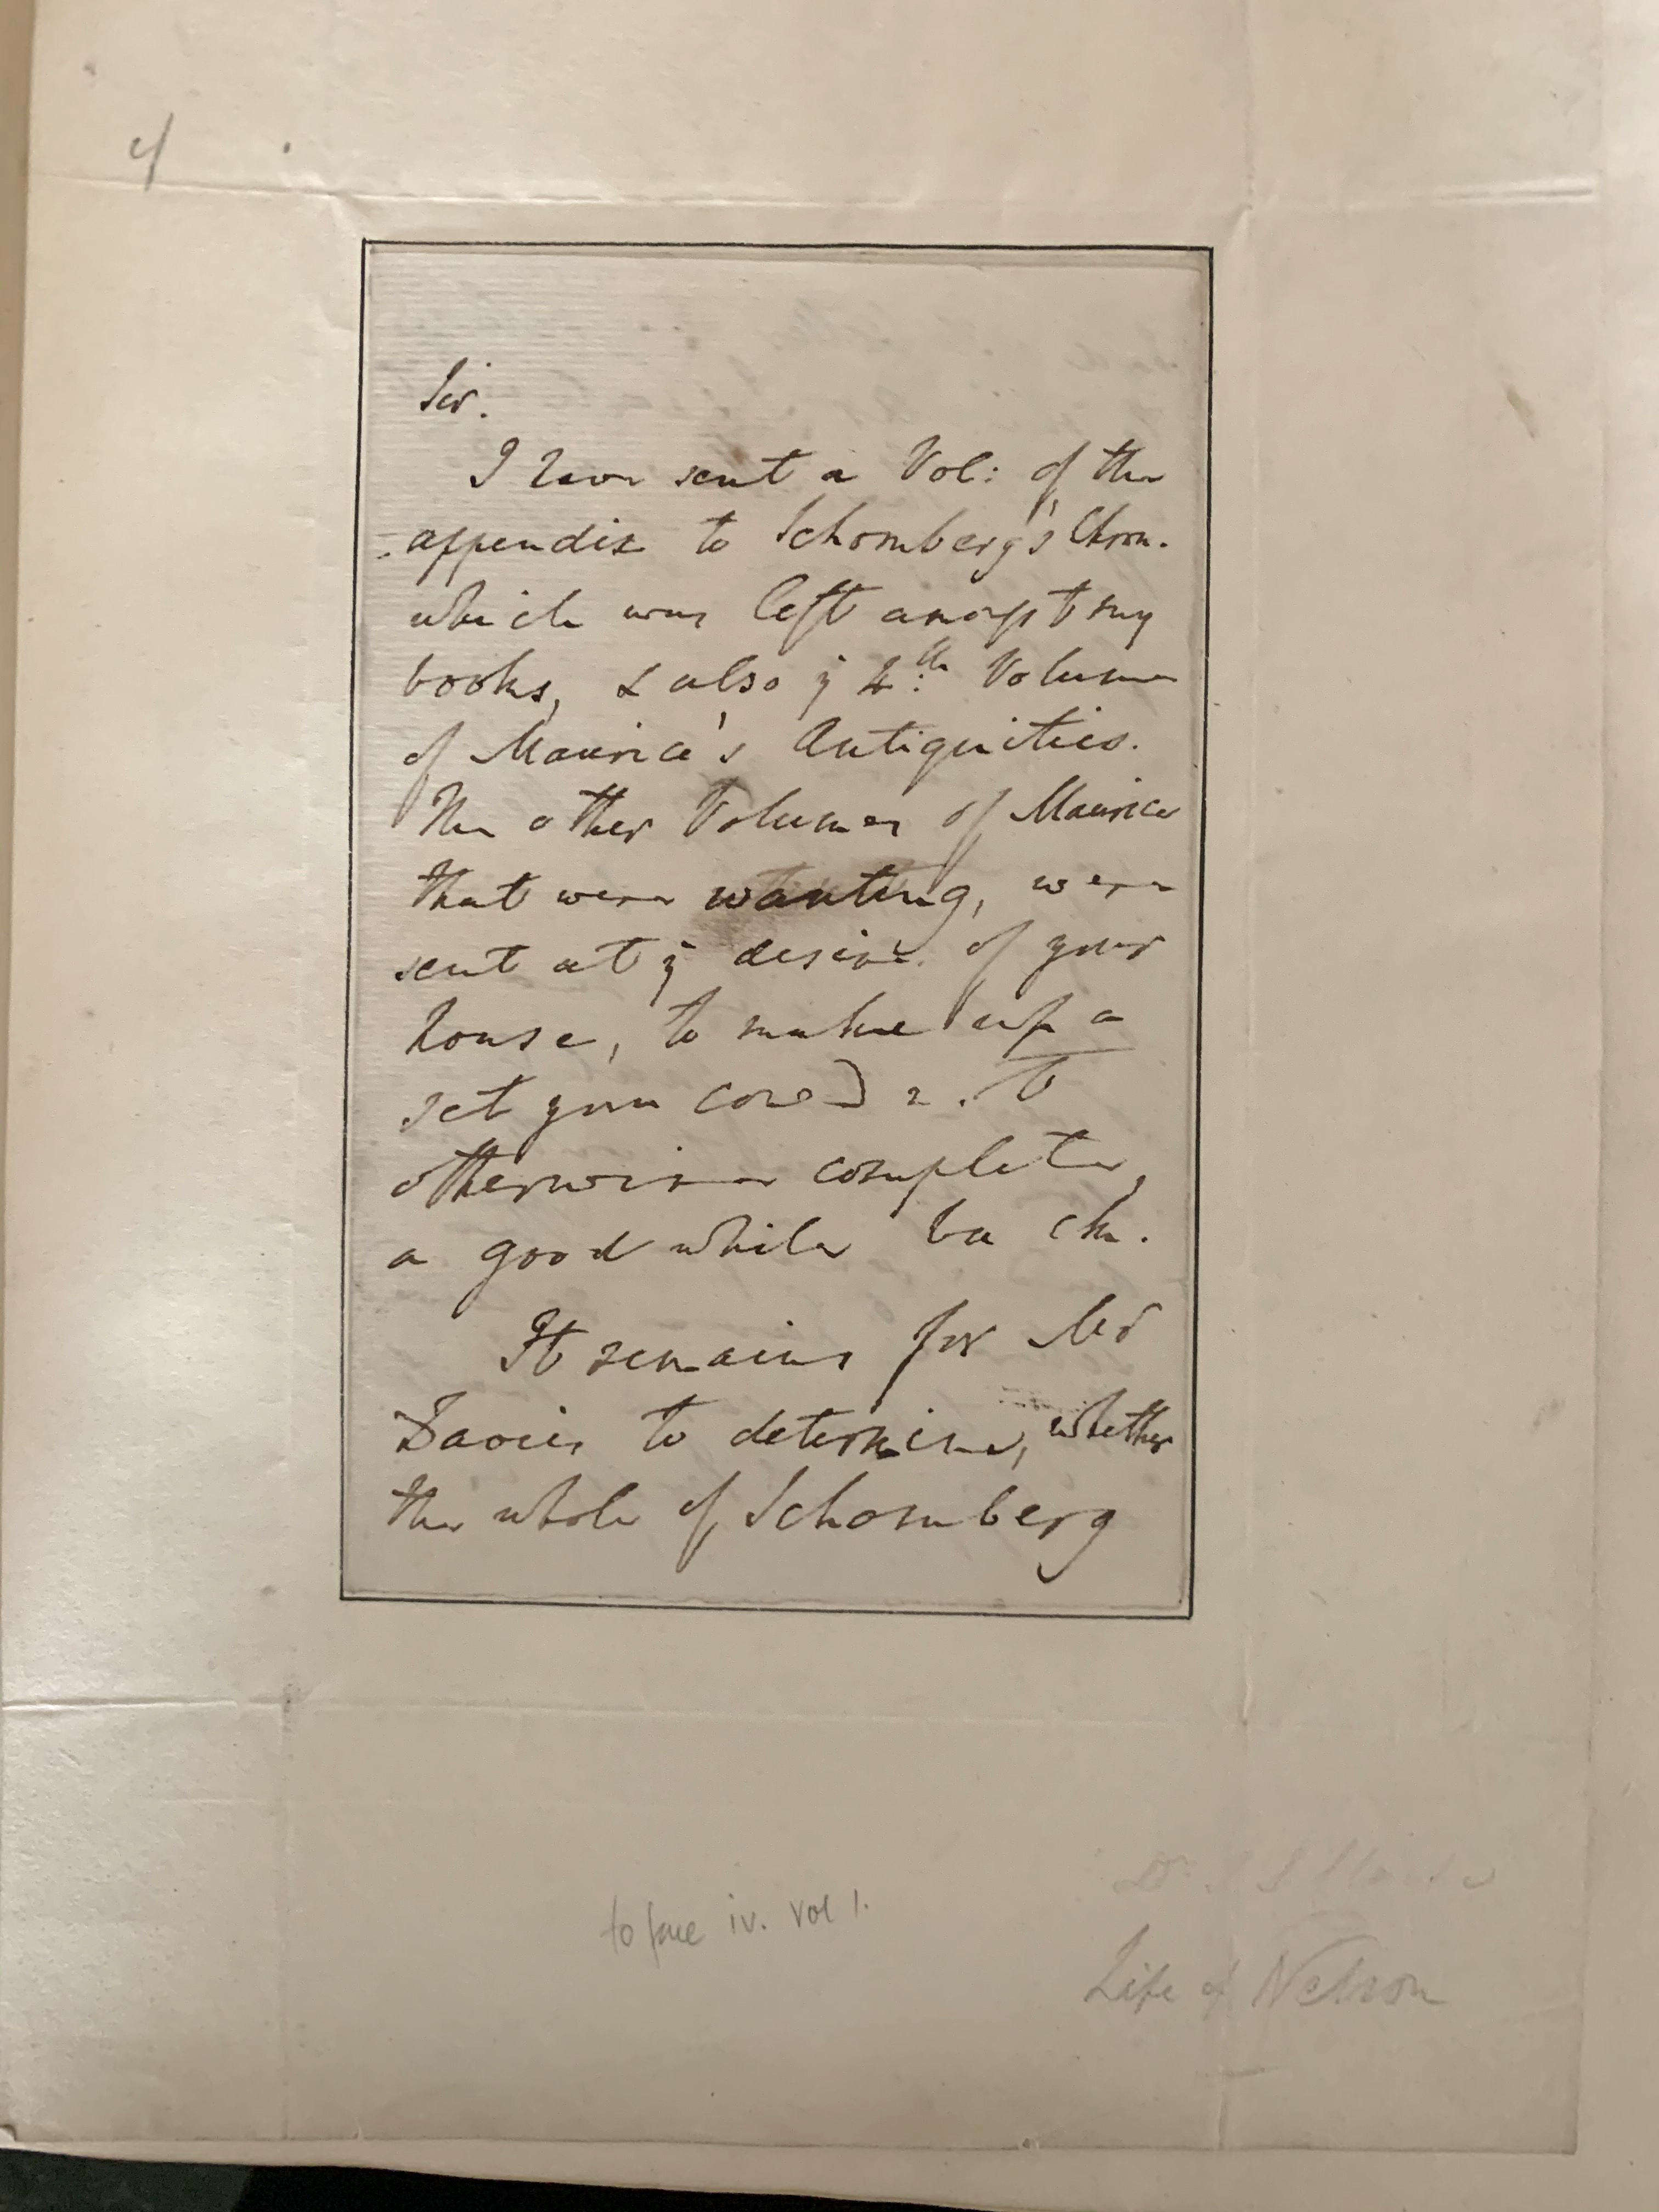 Sir.
I have sent a Vol: of the
appendix to Schomberg's Chron.
which was left amongst my
books, & also ye 4th Volume
of Maurice's Antiquities.
The other Volumes of Maurice
that were wanting, were
sent at ye desire of your
house, to make up a
set you
otherwise complete,
a good while back.
It remains for Mr
Davies to determine, whether
the whole of Schomberg
to face iv. Vol 1.
Life of Nelson